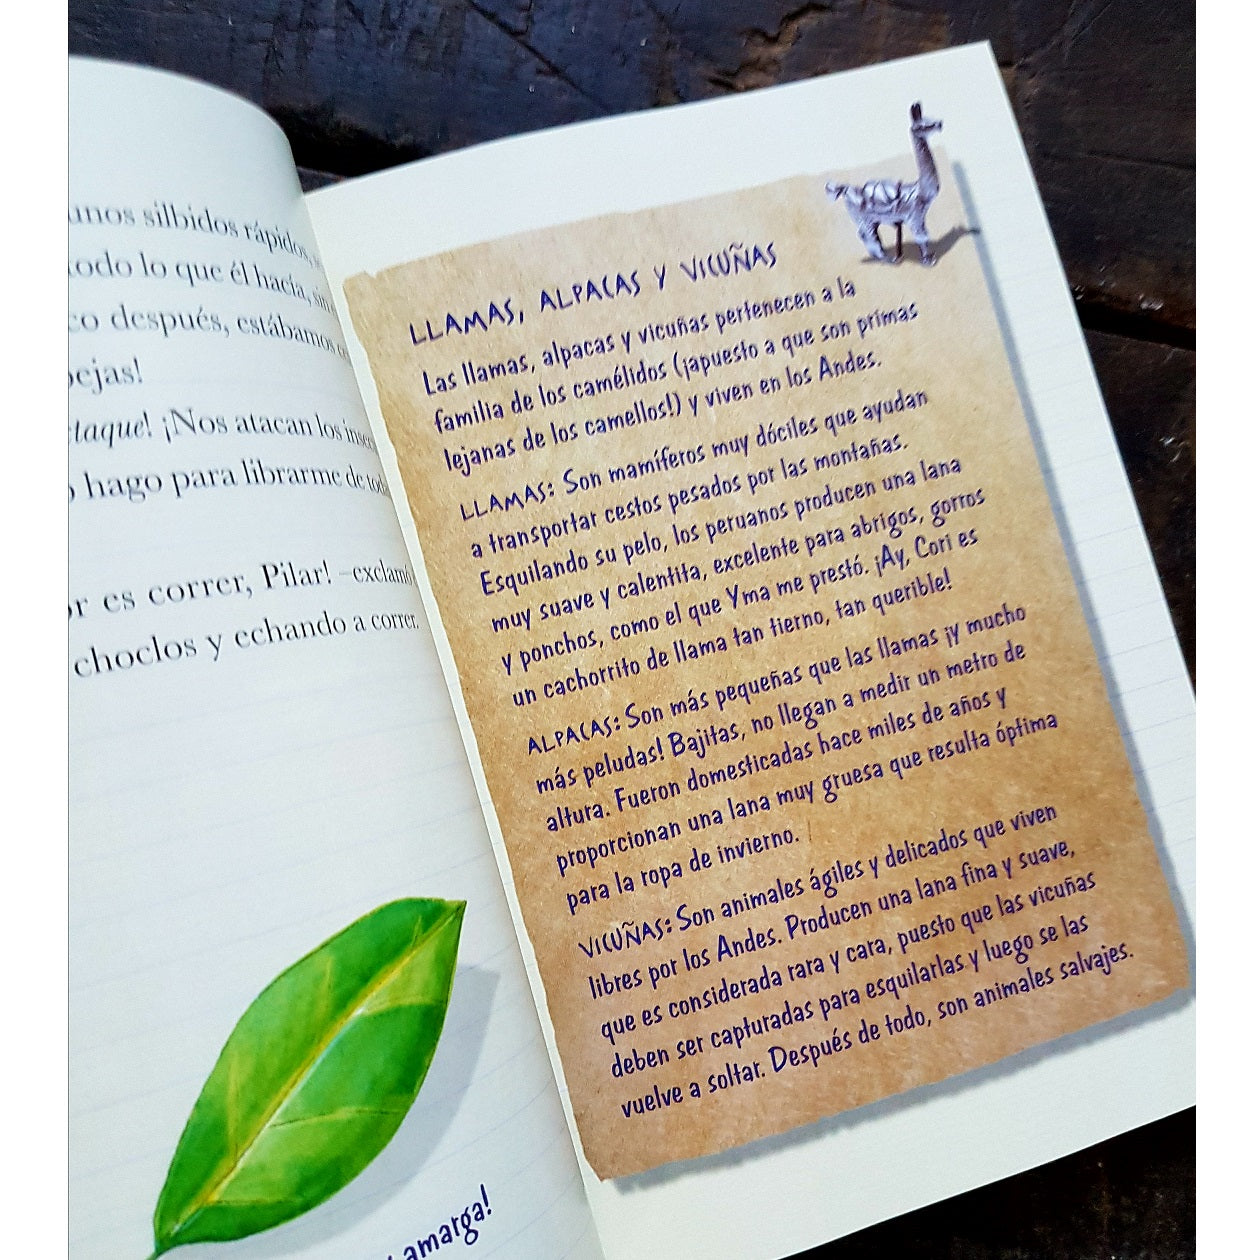 unos silbidos rápidos,
todo lo que él hacía, sin
co después, estábamos
ejas!
taque! ¡Nos atacan los
hago para librarme de
r es correr, Pilar! –exclamó
choclos y echando a correr.
amarga!
LLAMAS, ALPACAS Y VICUÑAS
Las llamas, alpacas y vicuñas pertenecen a la
familia de los camélidos (¡apuesto a que son primas
lejanas de los camellos!) y viven en los Andes.
LLAMAS: Son mamíferos muy dóciles que ayudan
a transportar cestos pesados por las montañas.
Esquilando su pelo, los peruanos producen una lana
muy suave y calentita, excelente para abrigos, gorros
y ponchos, como el que Yma me prestó. ¡Ay, Cori es
un cachorrito de llama tan tierno, tan querible!
ALPACAS: Son más pequeñas que las llamas ¡y mucho
más peludas! Bajitas, no llegan a medir un metro de
altura. Fueron domesticadas hace miles de años y
proporcionan una lana muy gruesa que resulta óptima
para la ropa de invierno.
VICUÑAS: Son animales ágiles y delicados que viven
libres por los Andes. Producen una lana fina y suave,
que es considerada rara y cara, puesto que las vicuñas
deben ser capturadas para esquilarlas y luego se las
vuelve a soltar. Después de todo, son animales salvajes.